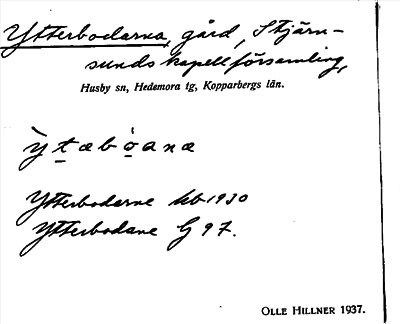 Ytterbodarna, gård, Stjärn-
sunds kapellförsamling,
Husby sn, Hedemora tg, Kopparbergs län.
ỳtæbòanæ
Ytterbodarne hb 1930
Ytterbodane G 97.
OLLE HILLNER 1937.